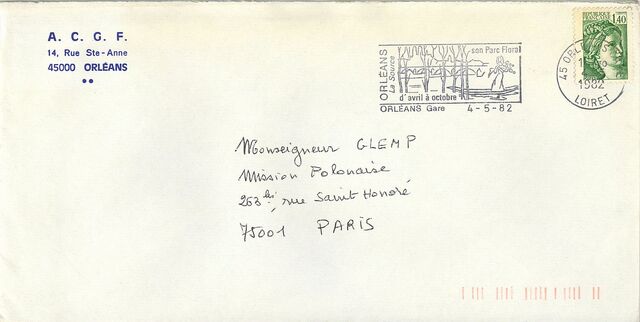 A. C. G. F.
14, Rue Ste-Anne
45000 ORLÉANS
ORLÉANS
La Source
son Parc Floral
d'avril à octobre
ORLÉANS Gare 4-5-82
1,40
45 ORLÉANS
1982
LOIRET
Monseigneur GLEMP
Mission Polonaise
263 bis, rue Saint Honoré
75001 PARIS